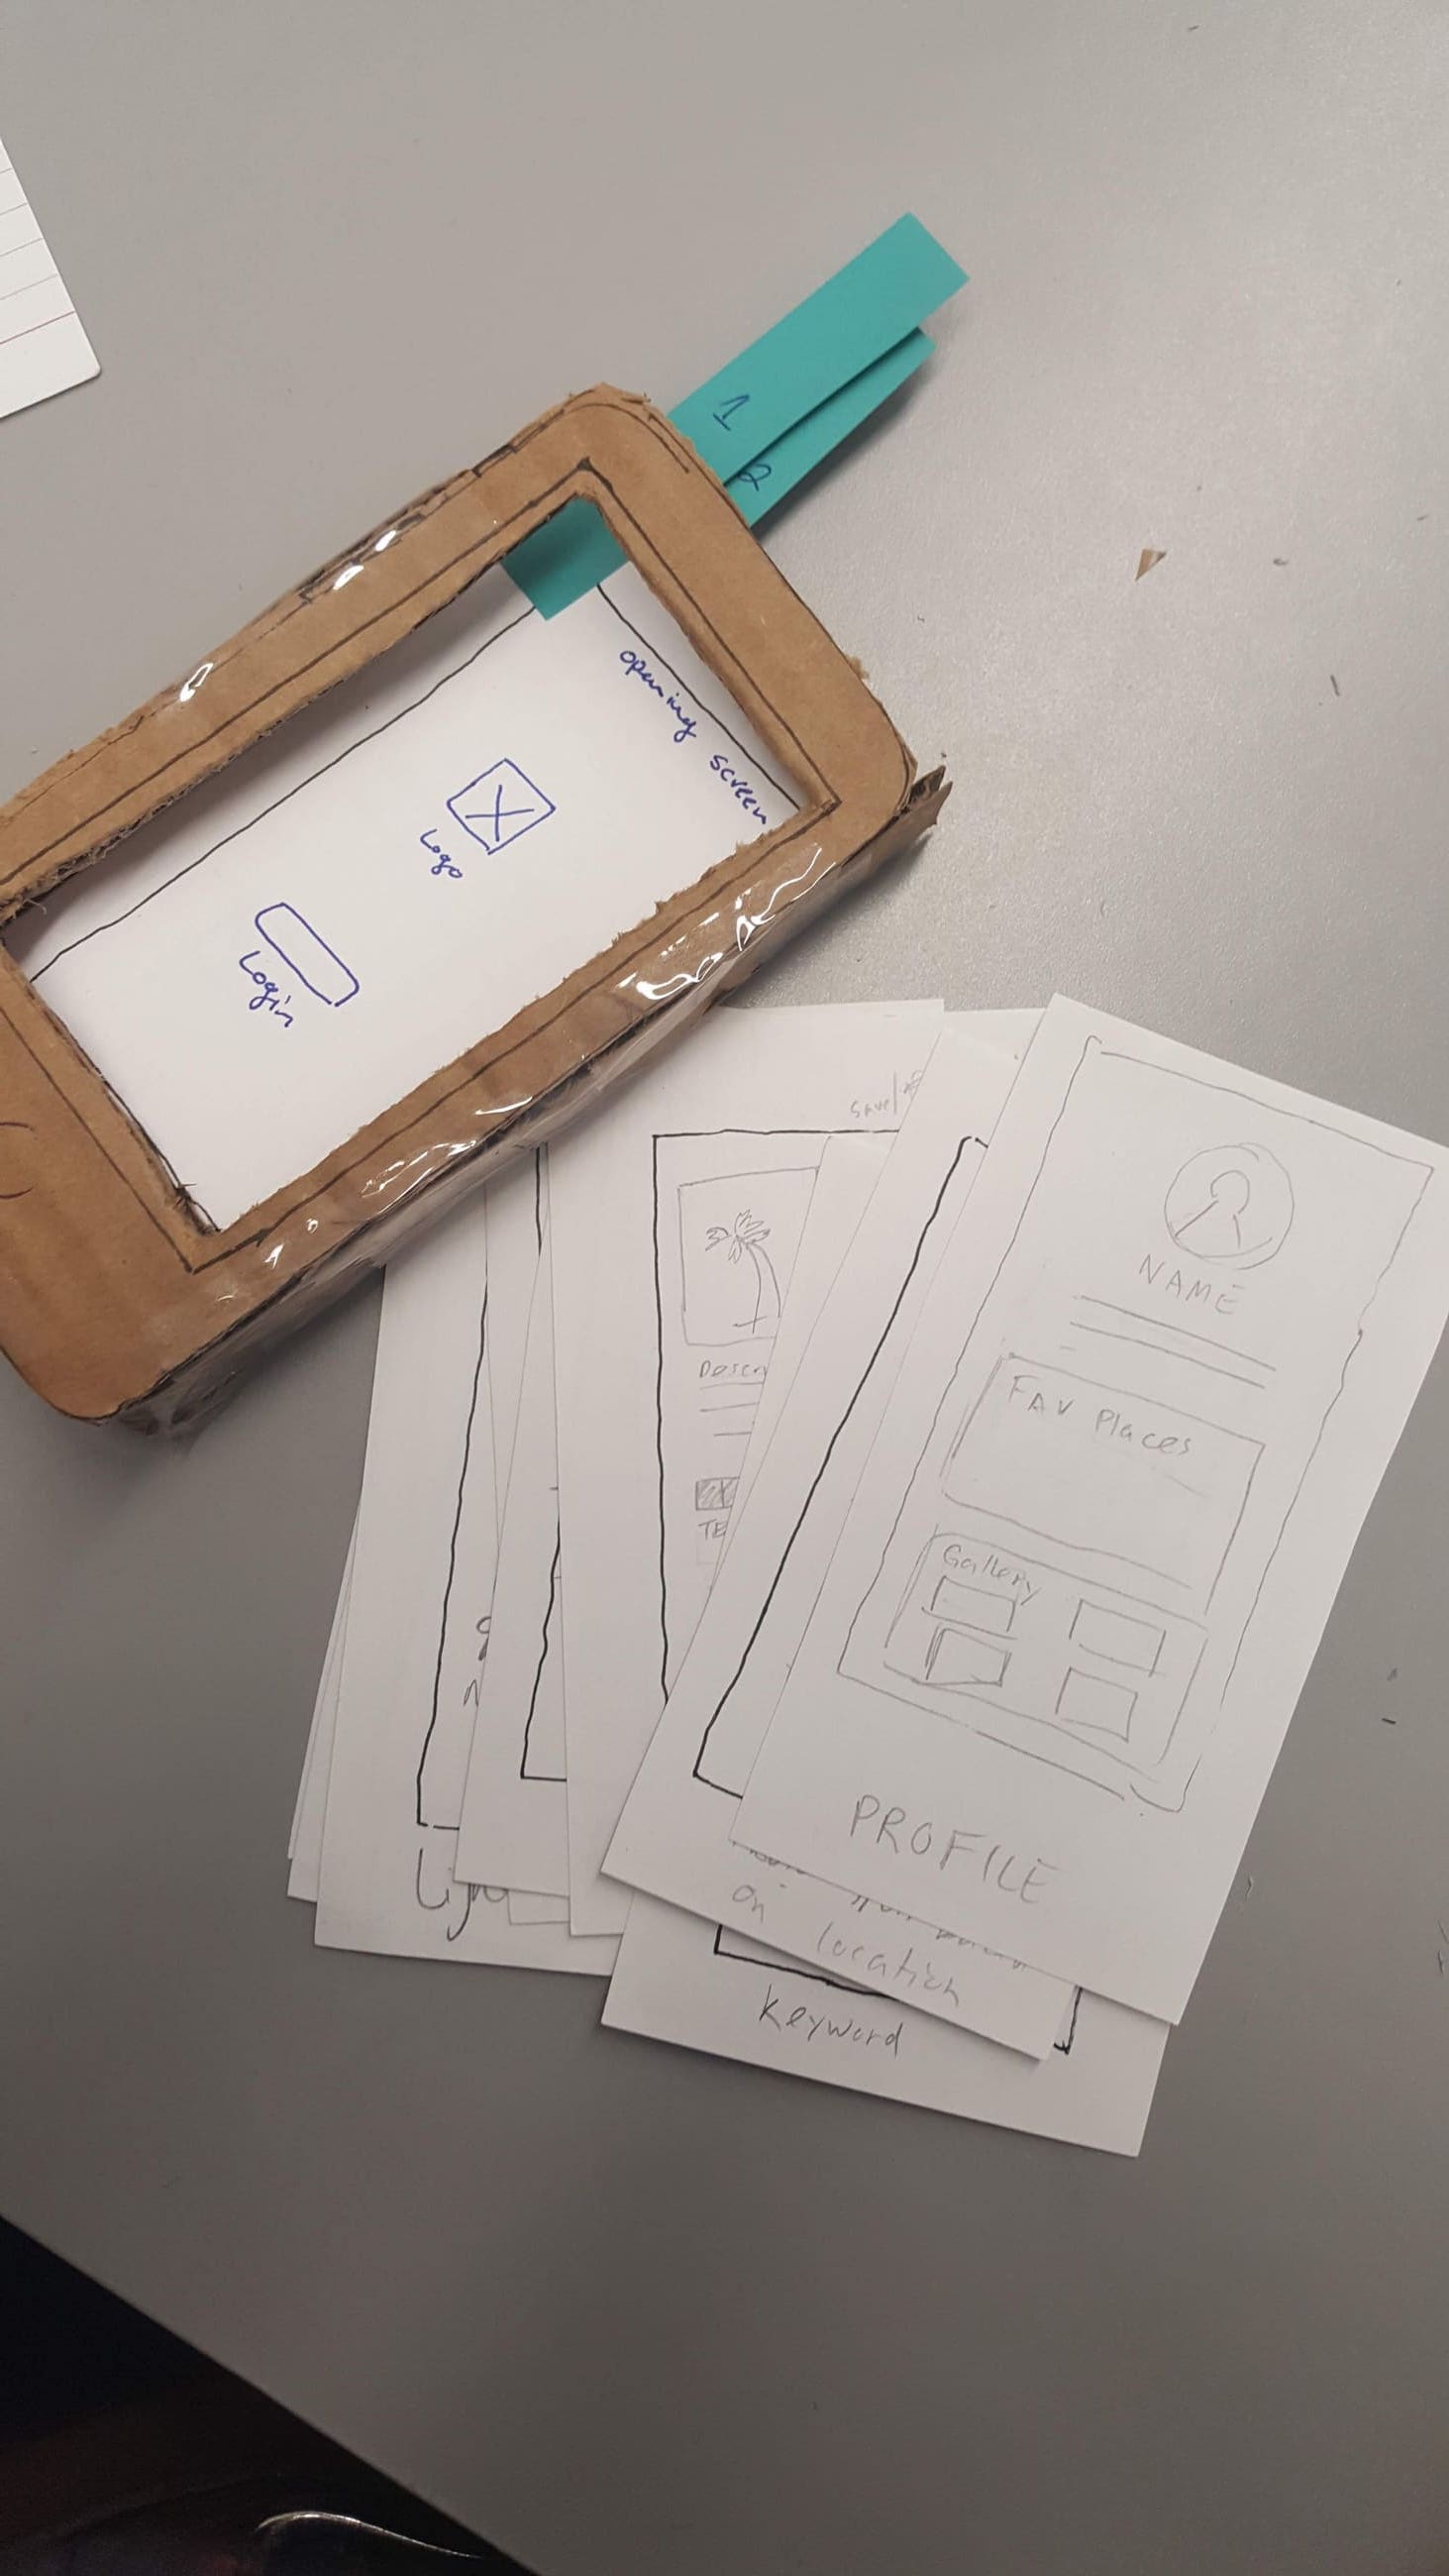 1
2
opening screen
Logo
Login
save/
Descr
TE
NAME
FAV Places
Gallery
PROFILE
on location
keyword